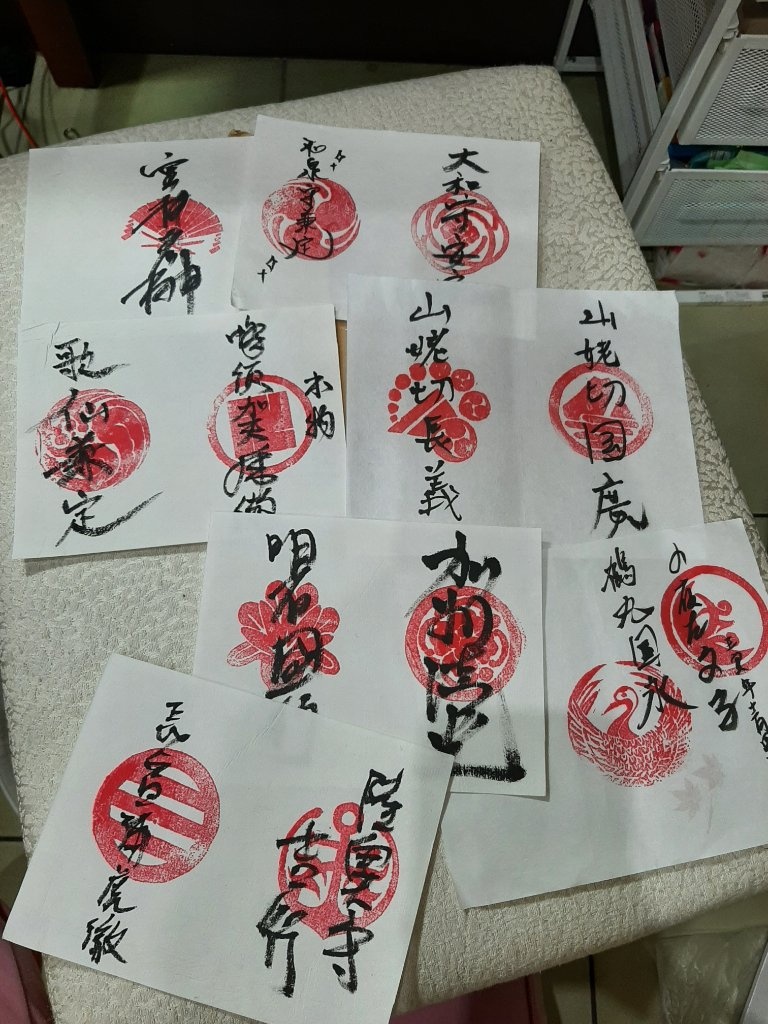 和泉守兼定
大和守安
歌仙兼定
蜂須賀虎徹
本物
山姥切長義
山姥切国廣
明石國
加州清光
鶴丸国永
小夜左文字
長曽祢虎徹
陸奥守
吉行